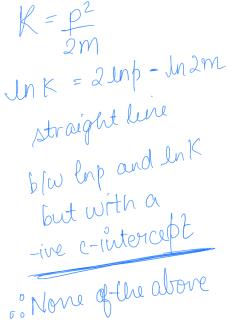 K = p²/2m
ln K = 2 lnp - ln 2m
straight line
b/w lnp and lnK
but with a
-ive c-intercept
∴ None of the above